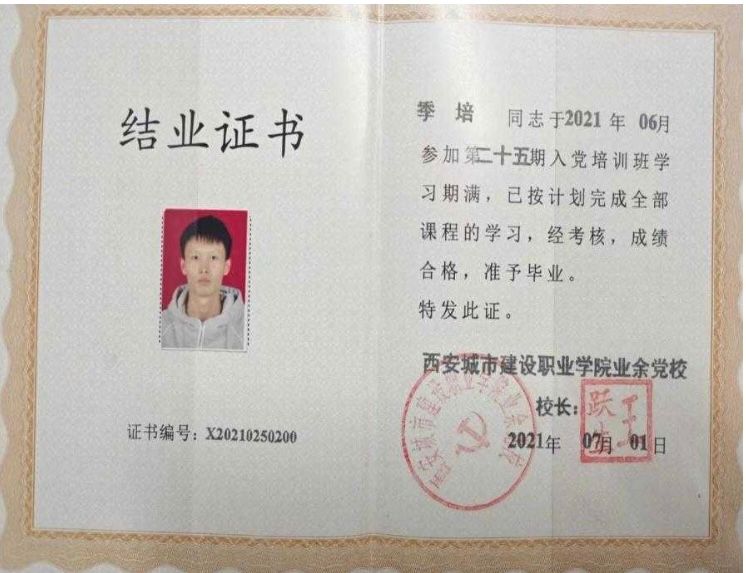 结业证书
证书编号：X20210250200
季 培 同志于2021 年 06月
参加第二十五期入党培训班学
习期满，已按计划完成全部
课程的学习，经考核，成绩
合格，准予毕业。
特发此证。
西安城市建设职业学院业余党校
校长：
2021年 07月 01日